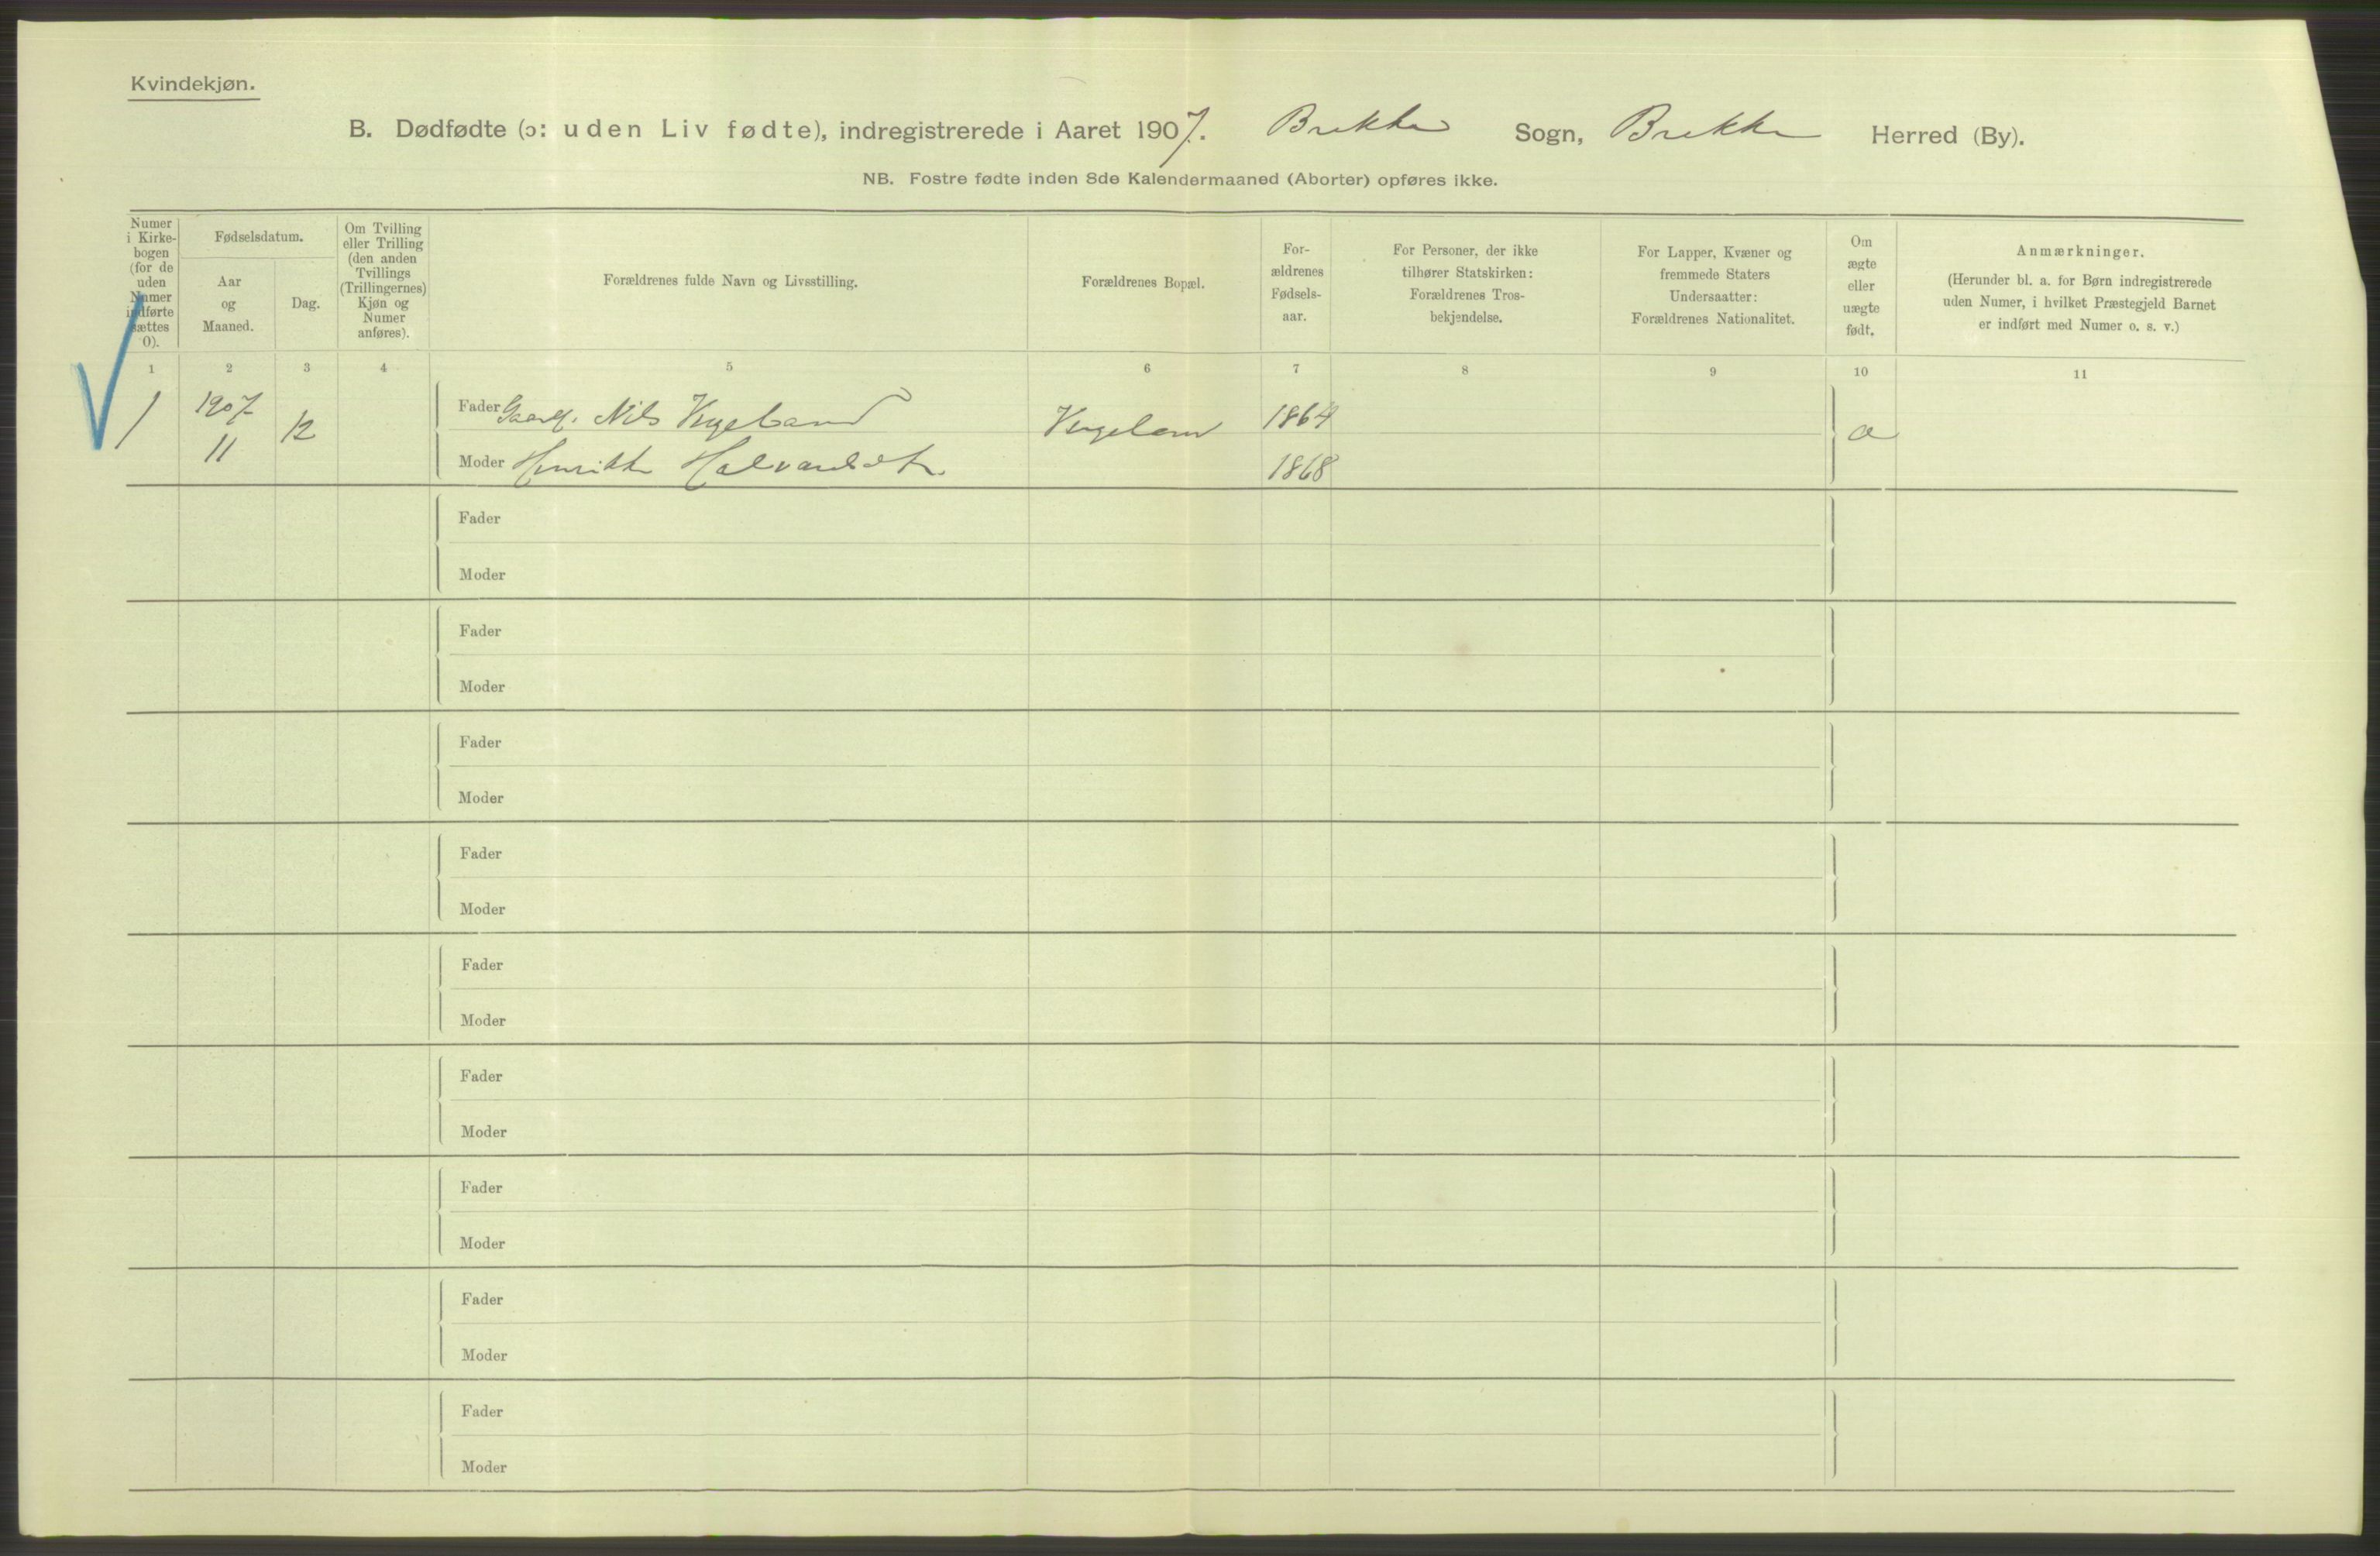 Kvindekjøn.
B. Dødfødte (ɔ: uden Liv fødte), indregistrerede i Aaret 1907. Brekke Sogn, Brekke Herred (By).
NB. Fostre fødte inden 8de Kalendermaaned (Aborter) opføres ikke.
Numer i Kirke-bogen (for de uden Numer indførte sættes 0).
Fødselsdatum.
Aar og Maaned.
Dag.
Om Tvilling eller Trilling (den anden Tvillings (Trillingernes) Kjøn og Numer anføres).
Forældrenes fulde Navn og Livsstilling.
Forældrenes Bopæl.
For-ældrenes Fødsels-aar.
For Personer, der ikke tilhører Statskirken: Forældrenes Tros-bekjendelse.
For Lapper, Kvæner og fremmede Staters Undersaatter: Forældrenes Nationalitet.
Om ægte eller uægte født.
Anmærkninger.
(Herunder bl. a. for Børn indregistrerede uden Numer, i hvilket Præstegjeld Barnet er indført med Numer o. s. v.)
1 2 3 4 5 6 7 8 9 10 11
1 1907 11 12 Fader Nils 1864
Moder Henrikke 1868
Fader
Moder
Fader
Moder
Fader
Moder
Fader
Moder
Fader
Moder
Fader
Moder
Fader
Moder
Fader
Moder
Fader
Moder